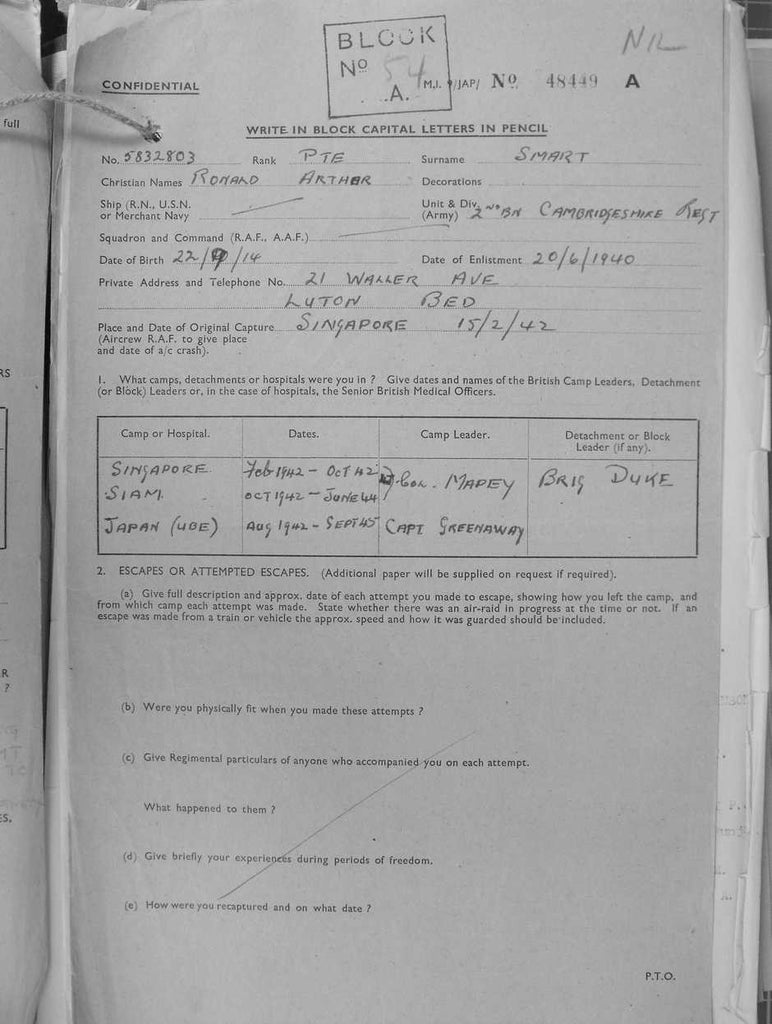 BLOCK
No 54
A.
NIL
CONFIDENTIAL
M.I. 9/JAP/ No 48449 A
full
WRITE IN BLOCK CAPITAL LETTERS IN PENCIL
No. 5832803 Rank PTE Surname SMART
Christian Names RONALD ARTHUR Decorations
Ship (R.N., U.S.N. or Merchant Navy
Unit & Div. (Army) 2ND BN CAMBRIDGESHIRE REGT
Squadron and Command (R.A.F., A.A.F.)
Date of Birth 22/9/14 Date of Enlistment 20/6/1940
Private Address and Telephone No. 21 WALLER AVE
LUTON BED
Place and Date of Original Capture SINGAPORE 15/2/42
(Aircrew R.A.F. to give place
and date of a/c crash).
1. What camps, detachments or hospitals were you in ? Give dates and names of the British Camp Leaders, Detachment
(or Block) Leaders or, in the case of hospitals, the Senior British Medical Officers.
Camp or Hospital. Dates. Camp Leader. Detachment or Block Leader (if any).
SINGAPORE Feb 1942 - OCT 42 COL. MAPEY BRIG DUKE
SIAM OCT 1942 - JUNE 44
JAPAN (UBE) AUG 1942 - SEPT 45 CAPT GREENAWAY
2. ESCAPES OR ATTEMPTED ESCAPES. (Additional paper will be supplied on request if required).
(a) Give full description and approx. date of each attempt you made to escape, showing how you left the camp, and
from which camp each attempt was made. State whether there was an air-raid in progress at the time or not. If an
escape was made from a train or vehicle the approx. speed and how it was guarded should be included.
(b) Were you physically fit when you made these attempts ?
(c) Give Regimental particulars of anyone who accompanied you on each attempt.
What happened to them ?
(d) Give briefly your experiences during periods of freedom.
(e) How were you recaptured and on what date ?
P.T.O.